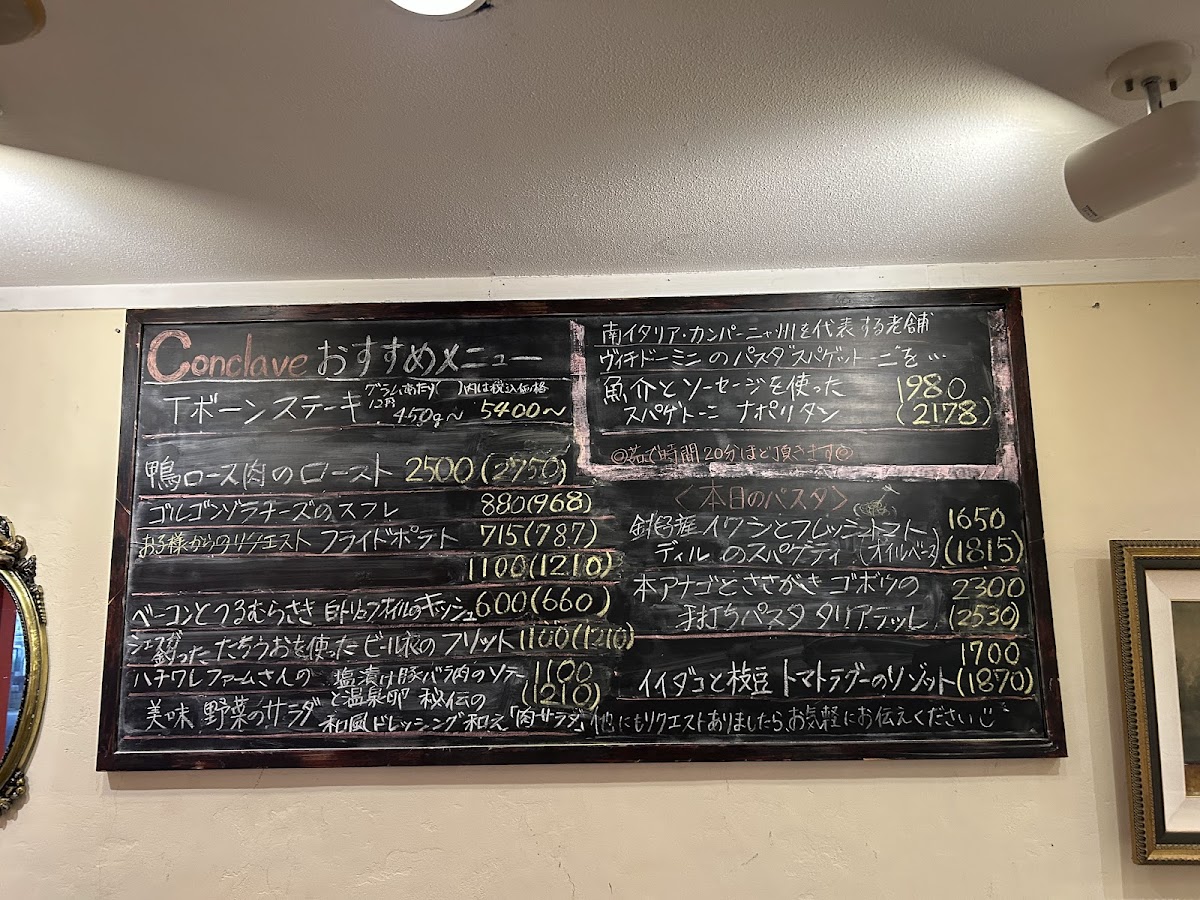 Conclave おすすめメニュー
グラムあたり( )内は税込価格
Tボーンステーキ 12円 450g〜 5400〜
鴨ロース肉のロースト 2500(2750)
ゴルゴンゾラチーズのスフレ 880(968)
お子様からのリクエスト フライドポラト 715(787)
1100(1210)
ベーコンとつるむらさき 白トリュフオイルのキッシュ 600(660)
シェフが釣った たちうおを使ったビール衣のフリット 1100(1210)
ハチワレファームさんの 塩漬け豚バラ肉のソテー 1100
と温泉卵 秘伝の (1210)
美味 野菜のサラダ 和風ドレッシング和え「肉サラダ」
南イタリア・カンパーニャ州を代表する老舗
ヴィチドーミニのパスタ"スパゲットーニ"を…
魚介とソーセージを使った 1980
スパゲトーニ ナポリタン (2178)
◎茹で時間20分ほど頂きます◎
<本日のパスタ>
銚子産イワシとフレッシュトマト 1650
ディルのスパゲティ (オイルベース) (1815)
本アナゴとささがきゴボウの 2300
手打ちパスタ タリアテッレ (2530)
1700
イイダコと枝豆 トマトラグーのリゾット (1870)
他にもリクエストありましたら、お気軽にお伝えください